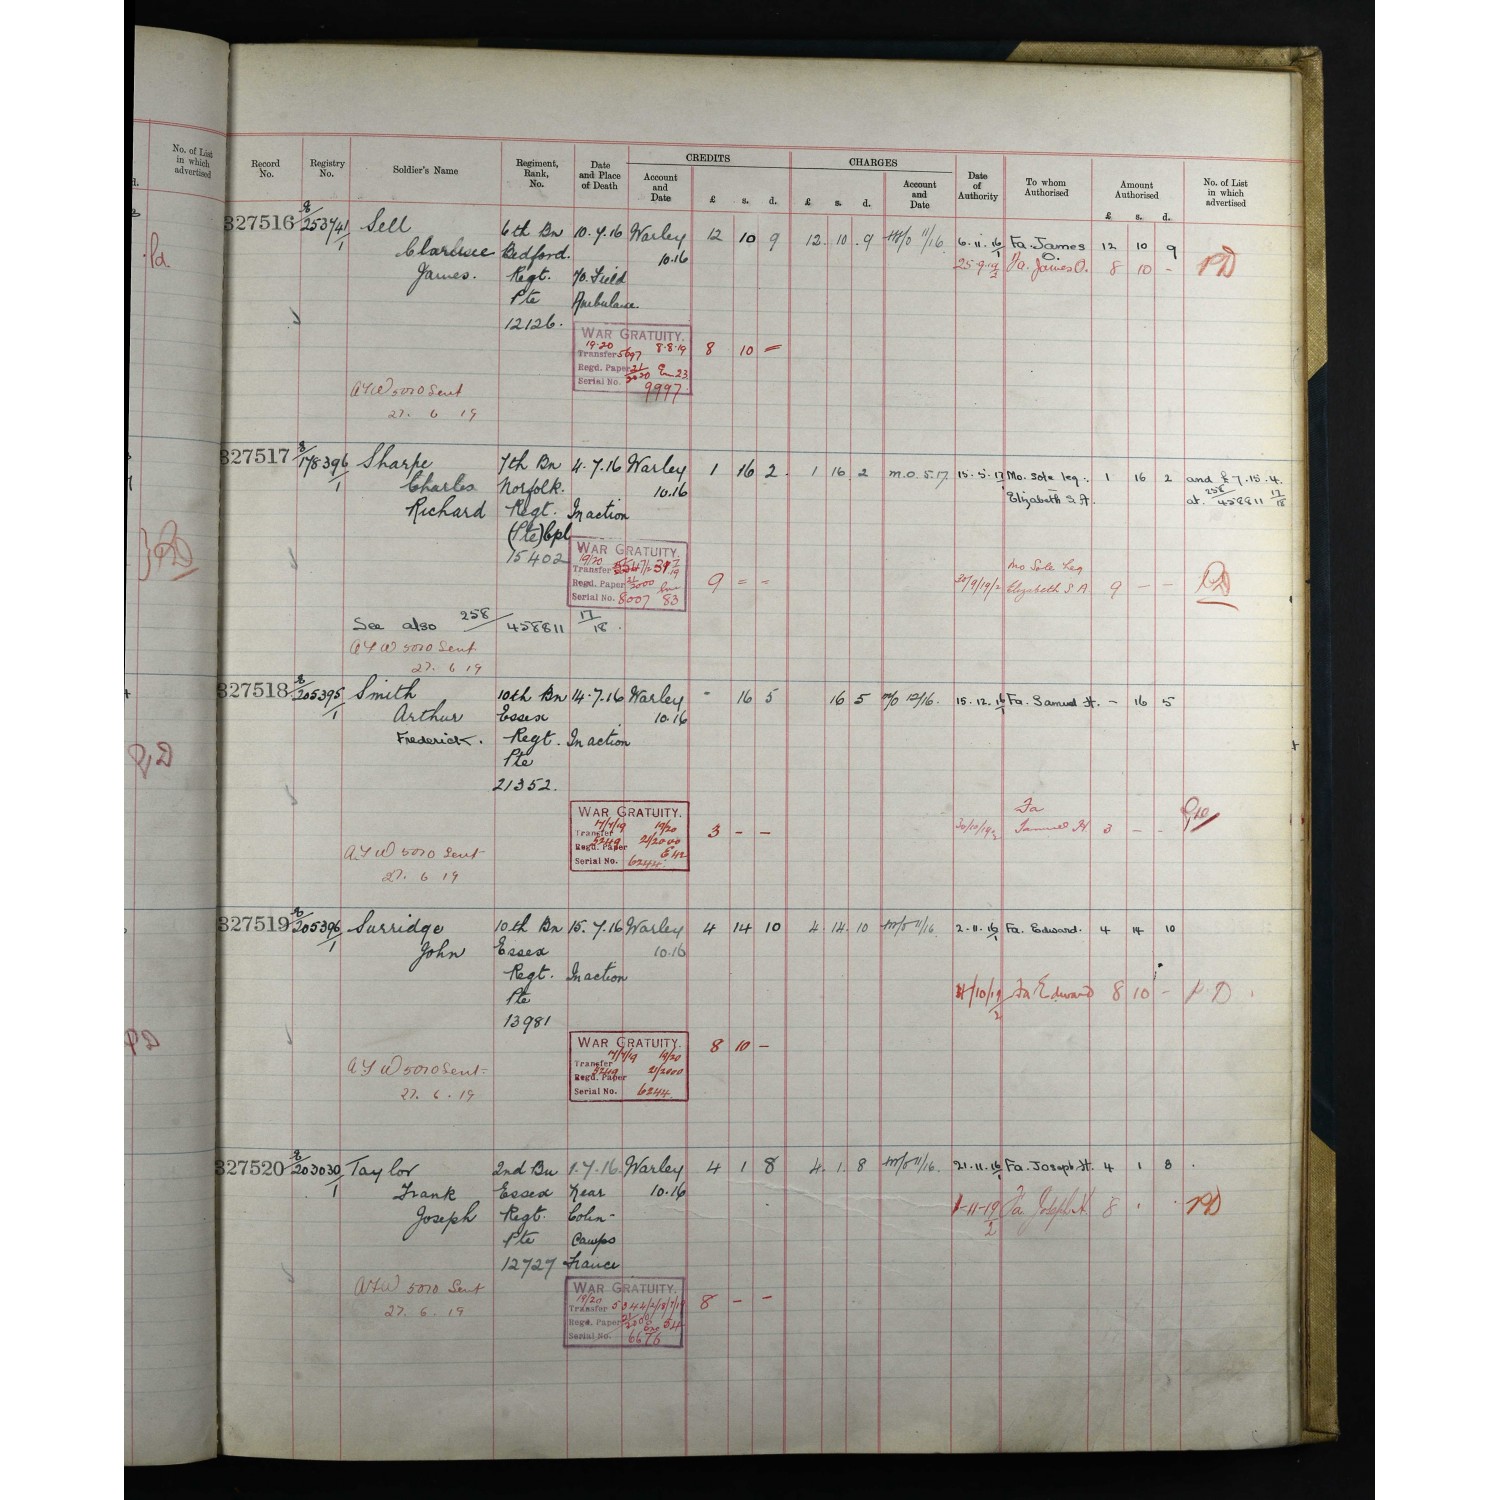 No. of List
in which
advertised
Record
No.
Registry
No.
Soldier's Name
Regiment,
Rank,
No.
Date
and Place
of Death
CREDITS
Account
and
Date
£ s. d.
CHARGES
£ s. d.
Account
and
Date
Date
of
Authority
To whom
Authorised
Amount
Authorised
£ s. d.
No. of List
in which
advertised
327516 253741/1 Sell 6th Bn 10.7.16 Warley 12 10 9 12. 10. 9 11/16 6.11.16 Fa. James 12 10 9
Clarence Bedford. 10.16 O.
James. Regt. 70. Field 25.9.19/2 Fa. James O. 8 10 - PD
Pte Ambulance.
12126.
WAR GRATUITY.
19.20 8.8.19
Transfer 5697 8 10 =
Regd. Paper 23
Serial No. 9997
AFW 5070 Sent
27. 6 19
327517 178396/1 Sharpe 7th Bn 4.7.16 Warley 1 16 2. 1 16 2 m.o.5.17. 15.5.17 Mo. Sole leg: 1 16 2 and £7.15.4.
Charles Norfolk. 10.16 Elizabeth S.A. at 258/458811 17/18
Richard Regt. In action
(Pte) Cpl
15402
WAR GRATUITY.
19/20
Transfer
Regd. Paper 9 = = 30/9/19/2 Mo Sole Leg
Serial No. 8007 83 Elizabeth S A 9 - - PD
See also 258/458811 17/18.
AFW 5070 Sent
27. 6 19
327518 205395/1 Smith 10th Bn 14.7.16 Warley - 16 5 16 5 m/o 12/16. 15.12.16 Fa. Samuel H. - 16 5
Arthur Essex 10.16
Frederick. Regt. In action
Pte
21352.
WAR GRATUITY.
17/7/19 19/20
Transfer 3 - - Fa
5249 21/2000 Samuel H 3 - -
Regd. Paper E 42
Serial No. 6244
AFW 5070 Sent
27. 6 19
327519 205396/1 Surridge 10th Bn 15.7.16 Warley 4 14 10 4. 14. 10 11/16. 2.11.16 Fa. Edward. 4 14 10
John Essex 10.16
Regt. In action /10/19/2 Fa Edward 8 10 - P.D
Pte
13981
WAR GRATUITY.
17/7/19 19/20 8 10 -
Transfer
5249 21/2000
Regd. Paper
Serial No. 6244
AFW 5070 Sent-
27. 6. 19
327520 203030/1 Taylor 2nd Bn 1.7.16. Warley 4 1 8 4. 1. 8 11/16. 21.11.16 Fa. Joseph H. 4 1 8
Frank Essex Near 10.16
Joseph Regt. Colin- 1-11-19/2 Fa. Joseph H 8 PD
Pte Camps
12727 France
WAR GRATUITY.
19/20 8 - -
Transfer
Regd. Paper 54
Serial No. 6676
AFW 5070 Sent
27. 6. 19